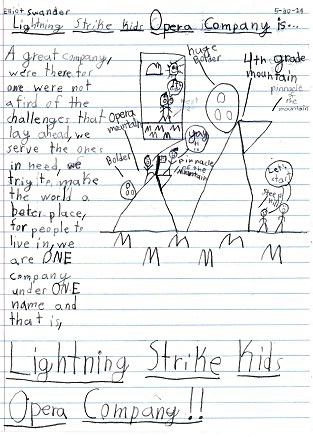 Elliot Swander
5-30-24
Lightning Strike Kids Opera Company is...
A great company,
were there for
one were not
afird of the
challenges that
lay ahead, we
serve the ones
in need, we
trigits, make
the world a
beter place,
for people to
live in, we
are ONE
company
under ONE
name and
that is,
huge
Bolder
4th grade
mountain
pinnacle
of the
mountain
Opera
mountain
Bolder
yay
pinnacle
of the
mountain
Let's
start
Lightning Strike Kids
Opera Company!!